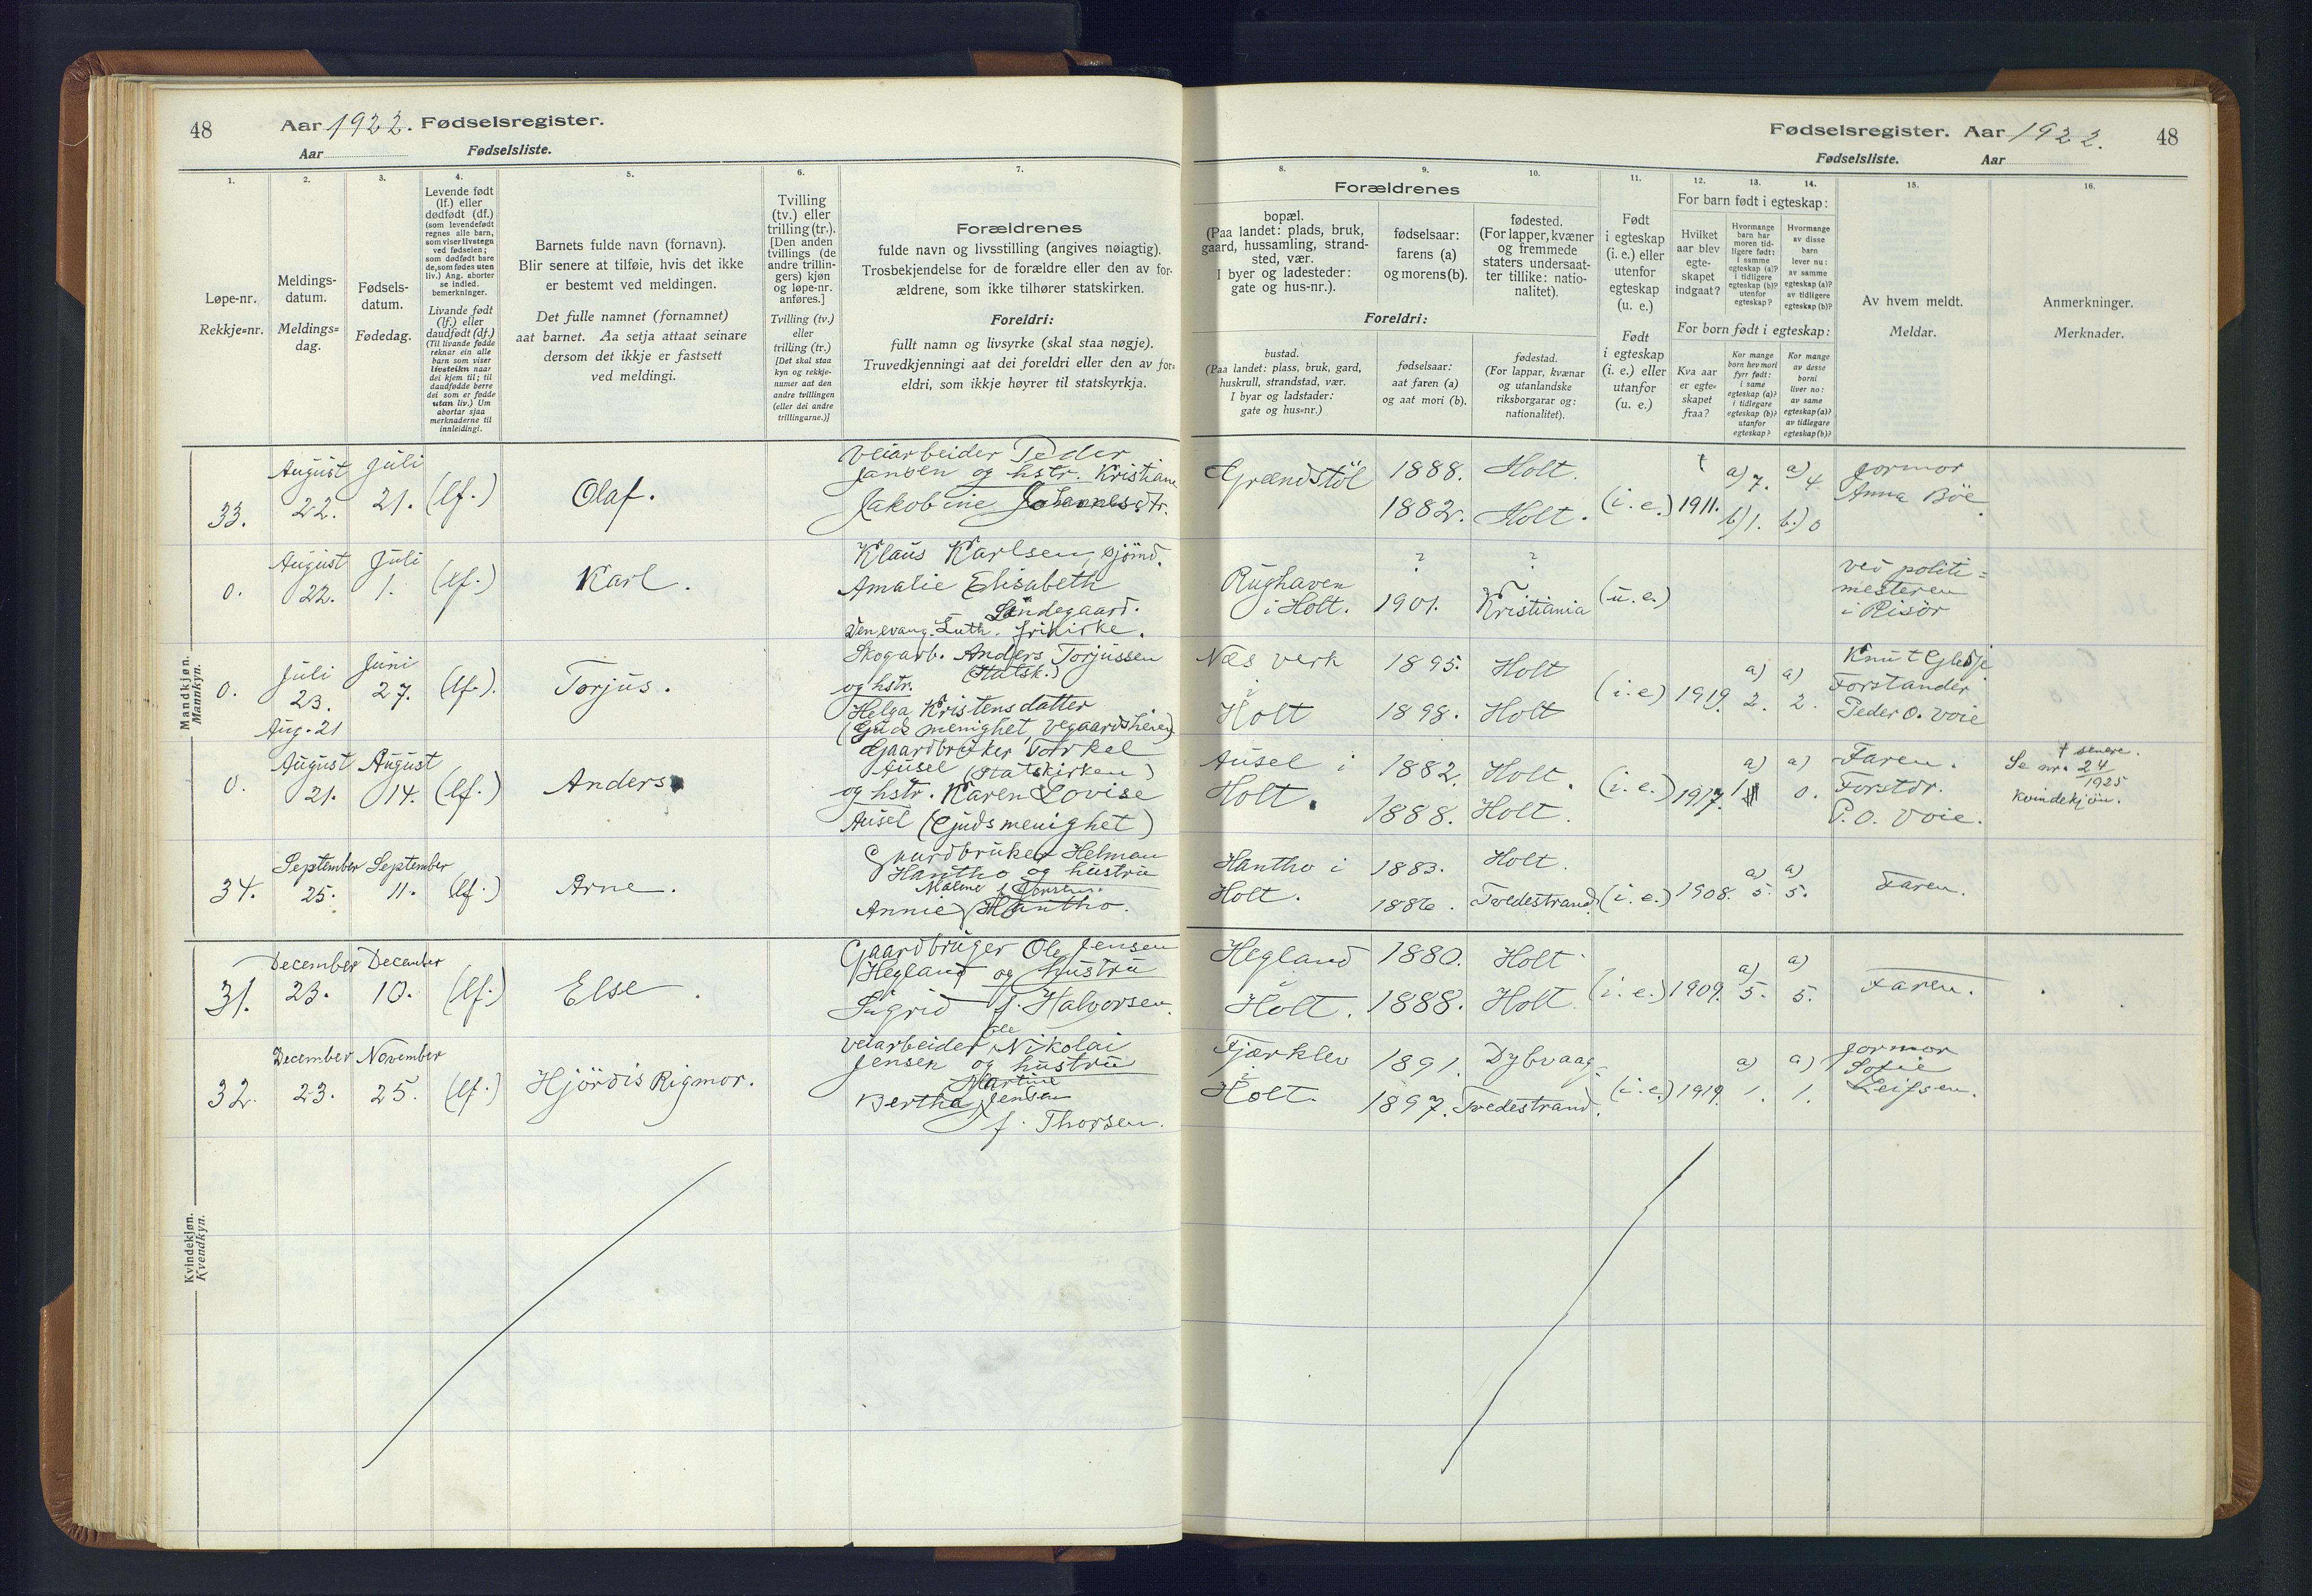 48
Aar 1922. Fødselsregister.
Aar
Fødselsliste.
1.
2.
3.
4.
5.
6.
7.
Løpe-nr.
Rekkje=nr.
Meldings-
datum.
Meldings=
dag.
Fødsels-
datum.
Fødedag.
Levende født
(lf.) eller
dødfødt (df.)
(som levendefødt
regnes alle barn,
som viser livstegn
ved fødselen;
som dødfødt bare
de, som fødes uten
liv.) Ang. aborter
se indled.
bemerkninger.
Livande født
(lf.) eller
daudfødt (df.)
(Til livande fødde
reknar ein alle
barn som viser
livsteikn naar
dei kjem til; til
daudfødde berre
dei som er fødde
utan liv.) Um
abortar sjaa
merknaderne til
innleidingi.
Barnets fulde navn (fornavn).
Blir senere at tilføie, hvis det ikke
er bestemt ved meldingen.
Det fulle namnet (fornamnet)
aat barnet. Aa setja attaat seinare
dersom det ikkje er fastsett
ved meldingi.
Tvilling
(tv.) eller
trilling (tr.).
[Den anden
tvillings (de
andre trillin-
gers) kjøn
og løpe-nr.
anføres.]
Tvilling (tv.)
eller
trilling (tr.)
[Det skal staa
kyn og rekkje-
numer aat den
andre tvillingen
(eller dei andre
trillingarne.)]
Forældrenes
fulde navn og livsstilling (angives nøiagtig).
Trosbekjendelse for de forældre eller den av for-
ældrene, som ikke tilhører statskirken.
Foreldri:
fullt namn og livsyrke (skal staa nøgje).
Truvedkjenningi aat dei foreldri eller den av for=
eldri, som ikkje høyrer til statskyrkja.
Mandkjøn.
Mankyn.
33.
August
22.
Juli
21.
(lf.)
Olaf.
Veiarbeider Peder
Jansen og hstr. Kristiane
Jakobine Johannesdtr.
0.
August
22.
Juli
1.
(lf.)
Karl.
Klaus Karlsen, sjömd.
Amalie Elisabeth
Søndegaard.
Den evang. Luth. frikirke.
0.
Juli
23.
Aug. 21
Juni
27.
(lf.).
Torjus.
Skogarb. Anders Torjussen
(Statsk.)
og hstr.
Helga Kristensdatter
(Guds menighet Vegaardsheien)
0.
August
21.
August
14.
(lf.)
Anders
Gaardbruker Torkel
Ausel (Statskirken)
og hstr. Karen Lovise
Ausel (Guds menighet)
34.
September
25.
September
11.
(lf.)
Arne.
Gaardbruker Helman
Hantho og hustru
Malene f. Torsen.
Annie Hantho.
Kvindekjøn.
Kvendkyn.
31.
December
23.
December
10.
(lf.)
Else.
Gaardbruger Ole Jensen
Hegland og hustru
Sigrid f. Halvorsen.
32.
December
23.
November
25.
(lf.)
Hjördis Rigmor.
Ole
Veiarbeider Nikolai
Jensen og hustru
Martine
Berthe Jensen
f. Thorsen.
Fødselsregister. Aar 1922.
48
Fødselsliste.
Aar
8.
9.
10.
11.
12.
13.
14.
15.
16.
Forældrenes
bopæl.
(Paa landet: plads, bruk,
gaard, hussamling, strand-
sted, vær.
I byer og ladesteder:
gate og hus-nr.).
fødselsaar:
farens (a)
og morens (b).
fødested.
(For lapper, kvæner
og fremmede
staters undersaat-
ter tillike: natio-
nalitet).
Foreldri:
bustad.
(Paa landet: plass, bruk, gard,
huskrull, strandstad, vær.
I byar og ladstader:
gate og hus=nr.)
fødselsaar:
aat faren (a)
og aat mori (b).
fødestad.
(For lappar, kvænar
og utanlandske
riksborgarar og:
nationalitet).
Født
i egteskap
(i. e.) eller
utenfor
egteskap
(u. e.)
Født
i egteskap
(i. e.) eller
utanfor
(u. e.)
For barn født i egteskap:
Hvilket
aar blev
egte-
skapet
indgaat?
Hvormange
barn har
moren tid-
ligere født:
i samme
egteskap (a)?
i tidligere
egteskap (b)?
utenfor
egteskap?
Hvormange
av disse
barn
lever nu:
av samme
egteskap (a)?
av tidligere
egteskap (b)?
For born født i egteskap:
Kva aar
er egte-
skapet
fraa?
Kor mange
born hev mori
fyrr født:
i same
egteskap (a)?
i tidlegare
egteskap (b)?
utanfor
egteskap?
Kor mange
av desse
borni
liver no:
av same
egteskap (a)?
av tidlegare
egteskap (b)?
Av hvem meldt.
Meldar.
Anmerkninger.
Merknader.
Grændstöl
1888.
1882.
Holt.
Holt.
(i. e.)
1911.
a) 7.
b) 1.
a) 4
b.) 0
Jormor
Anna Böe.
Rughaven
i Holt.
?
1901.
?
Kristiania
(u. e.)
ved politi=
mesteren
i Risör
Næs verk
i
Holt
1895.
1898.
Holt
Holt
(i. e)
1919.
a)
2.
a)
2.
Knut
Forstander
Peder O. Voie
Ausel i
Holt.
1882.
1888.
Holt.
Holt.
(i. e.)
1917.
a)
1
a)
0.
Faren.
Forstdr.
P. O. Voie.
† senere.
Se nr. 24/1925
Kvindekjön.
Hantho i
Holt.
1883.
1886.
Holt.
Tvedestrand
(i. e.)
1908.
a)
5.
a)
5.
Faren.
Hegland
i
Holt.
1880.
1888.
Holt
Holt
(i. e.)
1909.
a)
5.
a)
5.
Faren.
Fjærklev
i
Holt.
1891.
1897.
Dybvaag
Tvedestrand.
(i. e.)
1919.
a)
1.
a)
1.
Jormor
Sofie
Leifsen.